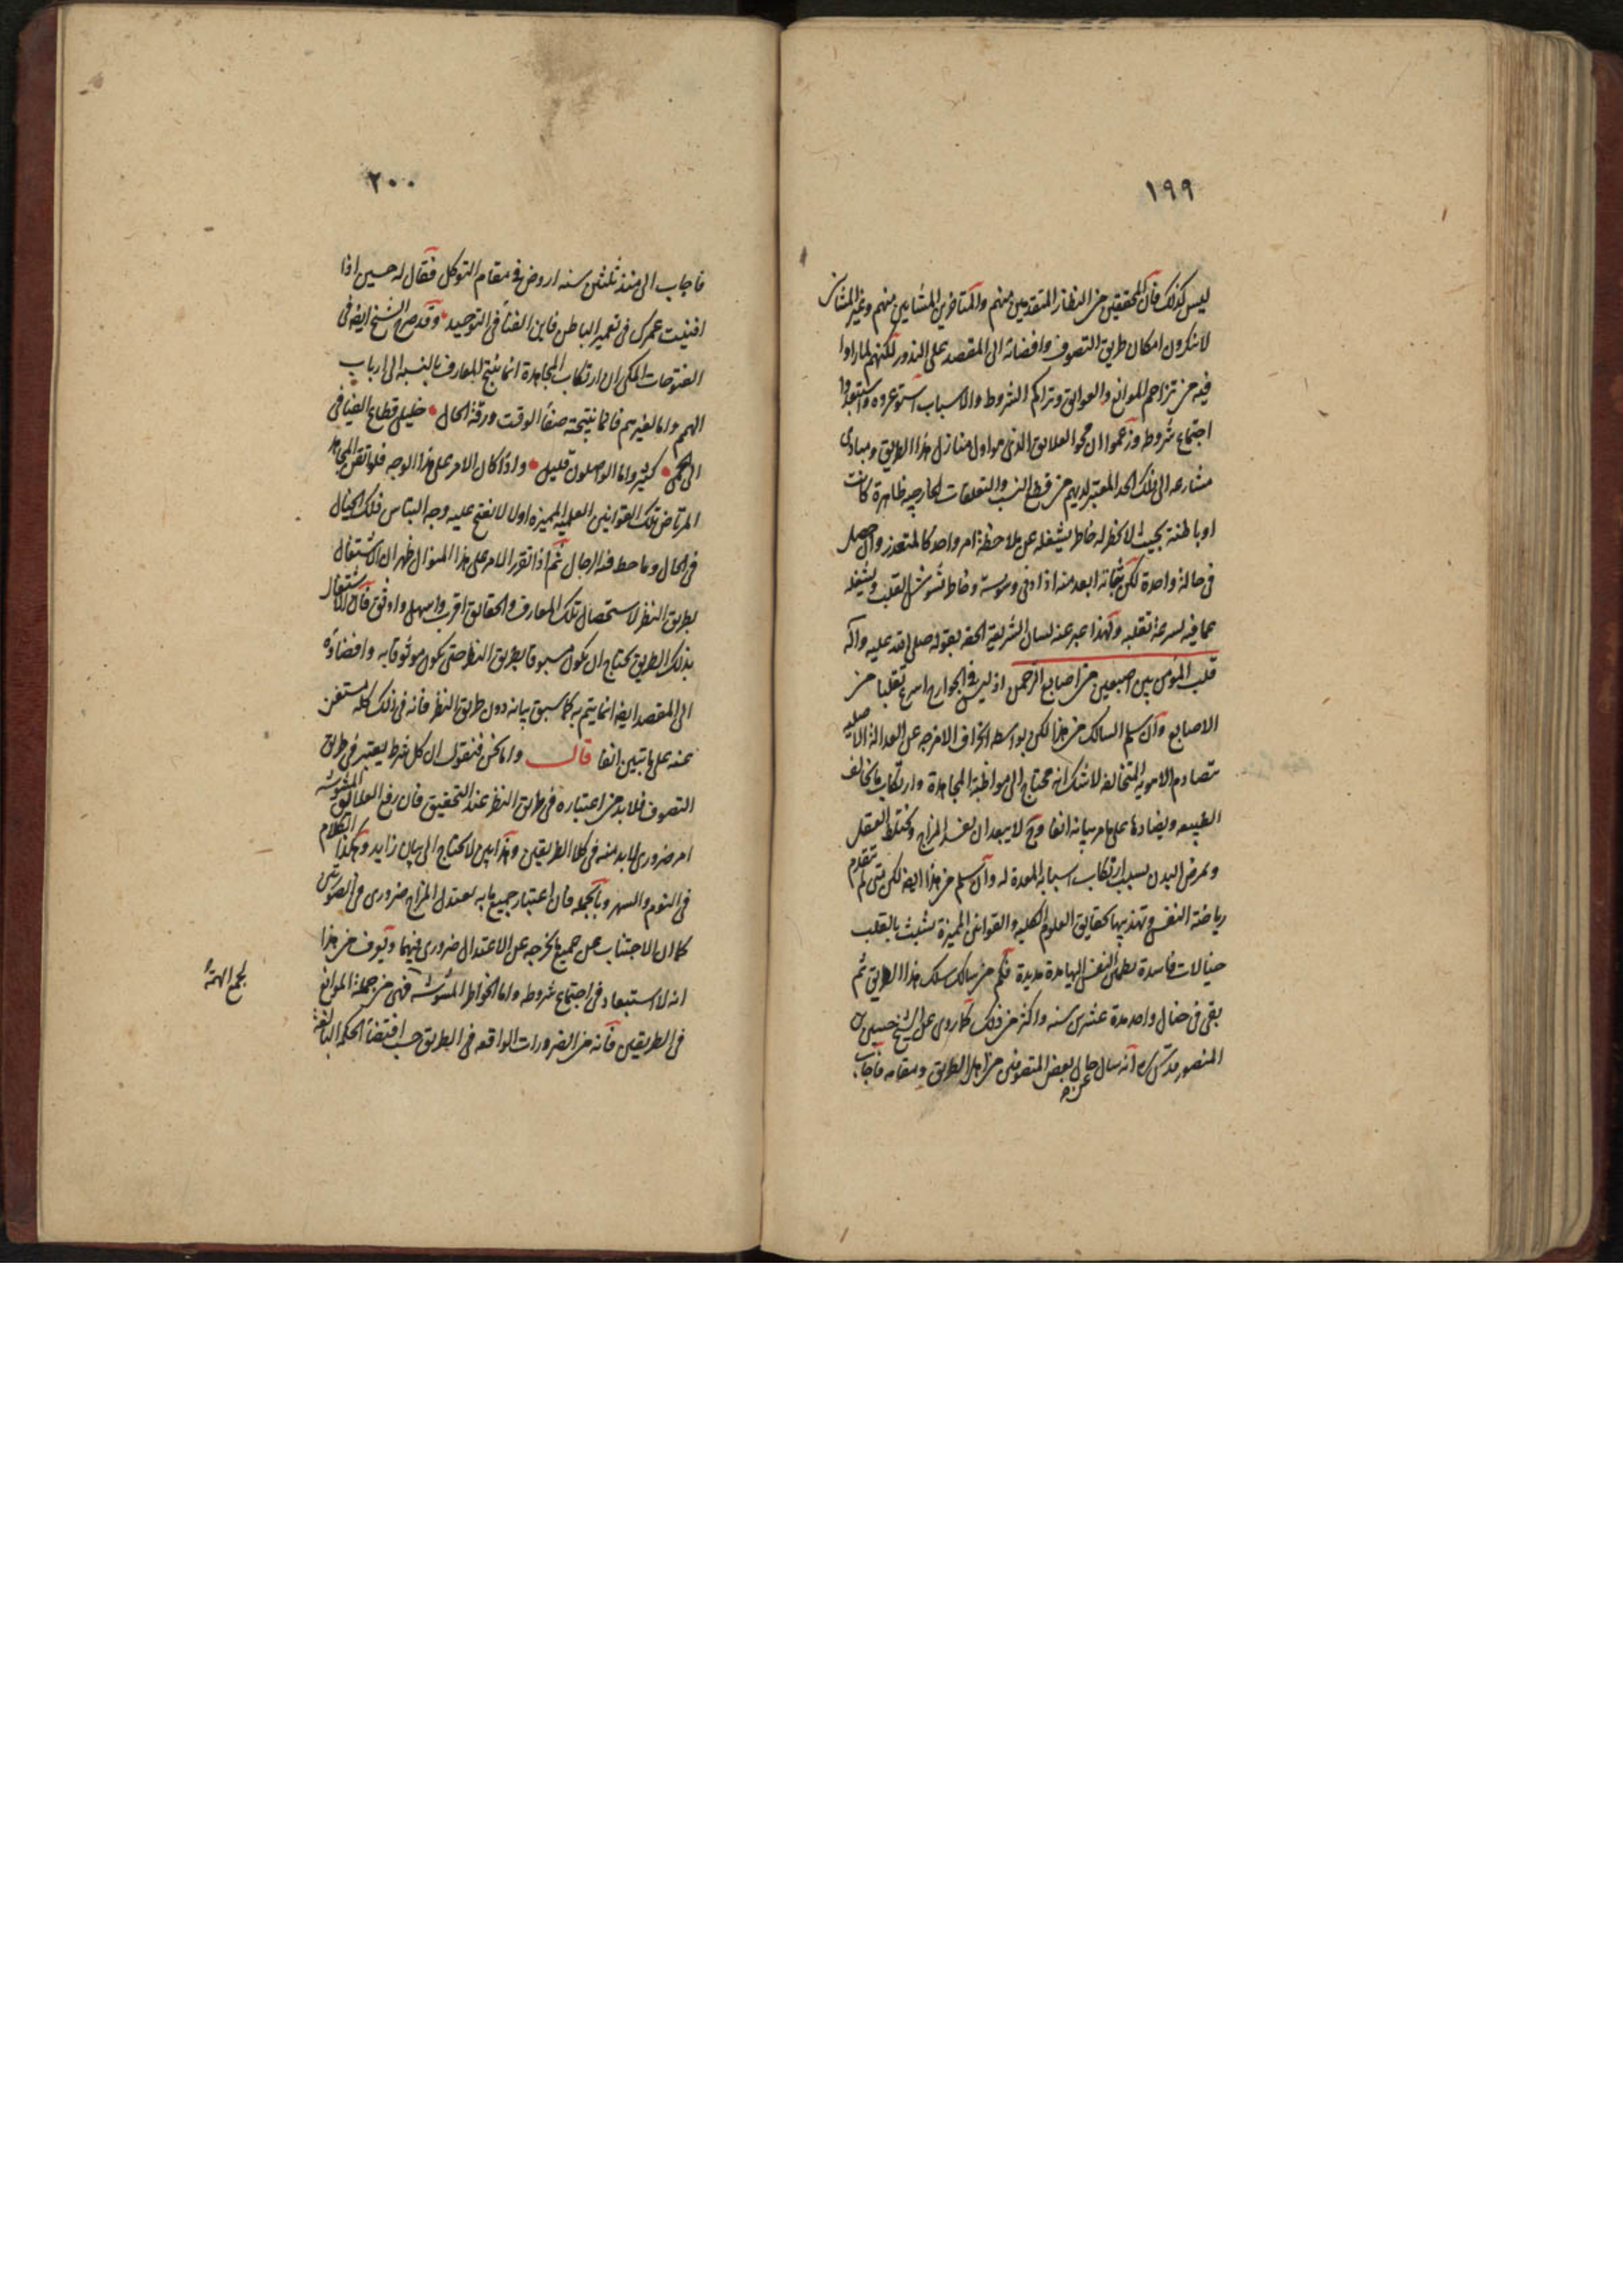 ١٩٩
ليس كذلك فان المحققين من النظار المتقدمين منهم والمتأخرين المشايين منهم وغير المشائين
لا ينكرون امكان طريق التصوف وافضائه الى المقصد على الندور لكنهم لما راوا
فيه من تزاحم الموانع والعوائق وتراكم الشروط والاسباب استوعروه واستبعدوا
اجتماع شروطه وزعموا ان محو العلائق الذى هو اول منازل هذا الطريق ومبادى
مشارعه الى ذلك الحد المعتبر لديهم من قطع النسب والتعلقات الخارجيه ظاهرة كانت
او باطنة بحيث لا يخطر له خاطر يشغله عن ملاحظة امر واحد كالمتعذر وان حصل
فى حالة واحدة لكن ثباته ابعد منه اذ ادنى وسوسة وخاطر تشوش القلب ويشغله
عما فيه لسرعة تقلبه ولهذا عبر عنه لسان الشريعة الحقه بقوله صلى الله عليه واله
قلب المؤمن بين اصبعين من اصابع الرحمن اذ ليس فى الجوارح اسرع تقلبا من
الاصابع وان سلم السالك من هذا لكن بواسطه انحراف الامزجه عن العدالة الاصليه
بتصادم الاهويه المتخالفه لا شك انه محتاج الى مواظبة المجاهدة وارتكاب ما يخالف
الطبيعه ويضادها على ما مر بيانه انفا وح لا يبعد ان يفسد المزاج ويختلط العقل
ويمرض البدن بسبب ارتكاب اسبابه المعدة له وان سلم من هذا ايضا لكن متى لم تتقدم
رياضة النفس وتهذيبها بحقايق العلوم الكليه والقوانين المميزة تشبثت بالقلب
خيالات فاسدة تطمئن النفس اليها مدة مديدة فكم من سالك سلك هذا الطريق ثم
بقى فى خيال واحد مدة عشرين سنه واكثر من ذلك كما روى عن الشيخ حسين بن
المنصور قدس سره انه سال عن حال بعض المتصوفين من اهل الطريق ومقامه فاجاب
٢٠٠
فاجاب انى منذ ثلثين سنه اروض فى مقام التوكل فقال له حسين اذا
افنيت عمرك فى تعمير الباطن فاين الفناء فى التوحيد وقد صرح الشيخ ايضا فى
الفتوحات المكى ان ارتكاب المجاهدة انما ينتج المعارف بالنسبه الى ارباب
الهمم واما لغيرهم فانما نتيجته صفاء الوقت ورقة الحال خليلى قطاع الفيافى
الى الحمى كثير واما الواصلون قليل واذا كان الامر على هذا الوجه فلو اتقن المجاهد
المرتاض تلك القوانين العلميه المميزه اولا لانفتح عليه وجه التباس ذلك الخيال
فى الحال وما حط فيه الرحال ثم اذا تقرر الامر على هذا المنوال ظهر ان الاشتغال
بطريق النظر لاستحصال تلك المعارف والحقايق اقرب واسهل واوثق فان الاشتغال
بذلك الطريق يحتاج ان يكون مسبوقا بطريق النظر حتى يكون موثوقا به وافضاؤه
الى المقصد ايضا انما يتم به كما سبق بيانه دون طريق النظر فانه فى ذلك كله مستغن
عنه على ما تبين انفا قال واما نحن فنقول ان كل شرط يعتبر فى طريق
التصوف فلا بد من اعتباره فى طريق النظر عند التحقيق فان رفع العلايق المشوشه
امر ضرورى لا بد منه فى كلا الطريقين وهذا بين لا يحتاج الى بيان زايد وهكذا الكلام
فى النوم والسهر وبالجمله فان اعتبار جميع ما به يعتدل المزاج ضرورى فى الصورتين
كما ان الاجتناب عن جميع ما يخرجه عن الاعتدال ضرورى فيهما ويعرف من هذا
ان لا استبعاد فى اجتماع شروطه واما الخواطر المشوشه فهى من جملة الموانع
لجمع الهمة
فى الطريقين فانه من الضرورات الواقعه فى الطريق حسب اقتضاء الحكم البالغة